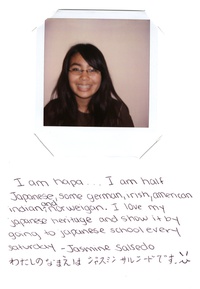 I am hapa... I am half
Japanese, some german, irish, american
indian, and norweigan. I love my
japanese heritage and show it by
going to japanese school every
saturday - Jasmine Salsedo
わたしのなまえは ジャスミン サルシードです。